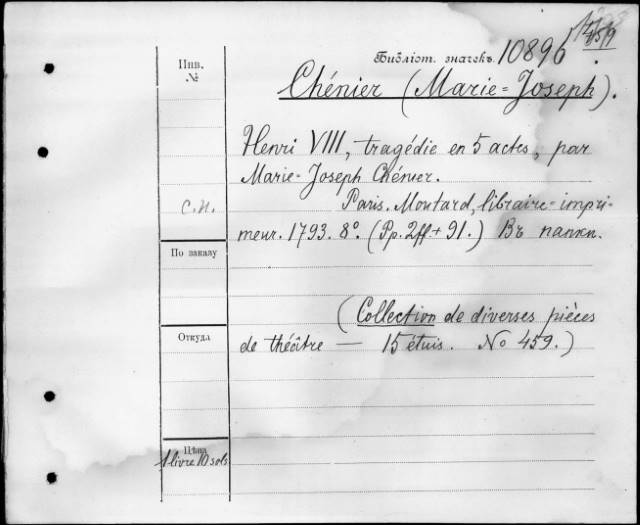 Инв.
№
Библіот. значекъ. 10896.
Chénier (Marie-Joseph).
Henri VIII, tragédie en 5 actes, par
Marie-Joseph Chénier.
С.И.
Paris. Moutard, libraire-impri-
meur. 1793. 8°. (Pp. 2ff + 91.) Въ папкѣ.
По заказу
(Collection de diverses pièces
Откуда
de théâtre — 15 étuis. No 459.)
Цѣна
1 livre 10 sols